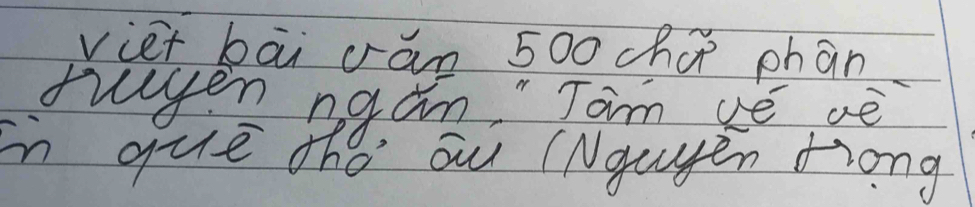 viết bài văn 500 chữ phân
truyện ngắn "Tấm vé về
quê thơ ấu (Nguyễn trọng